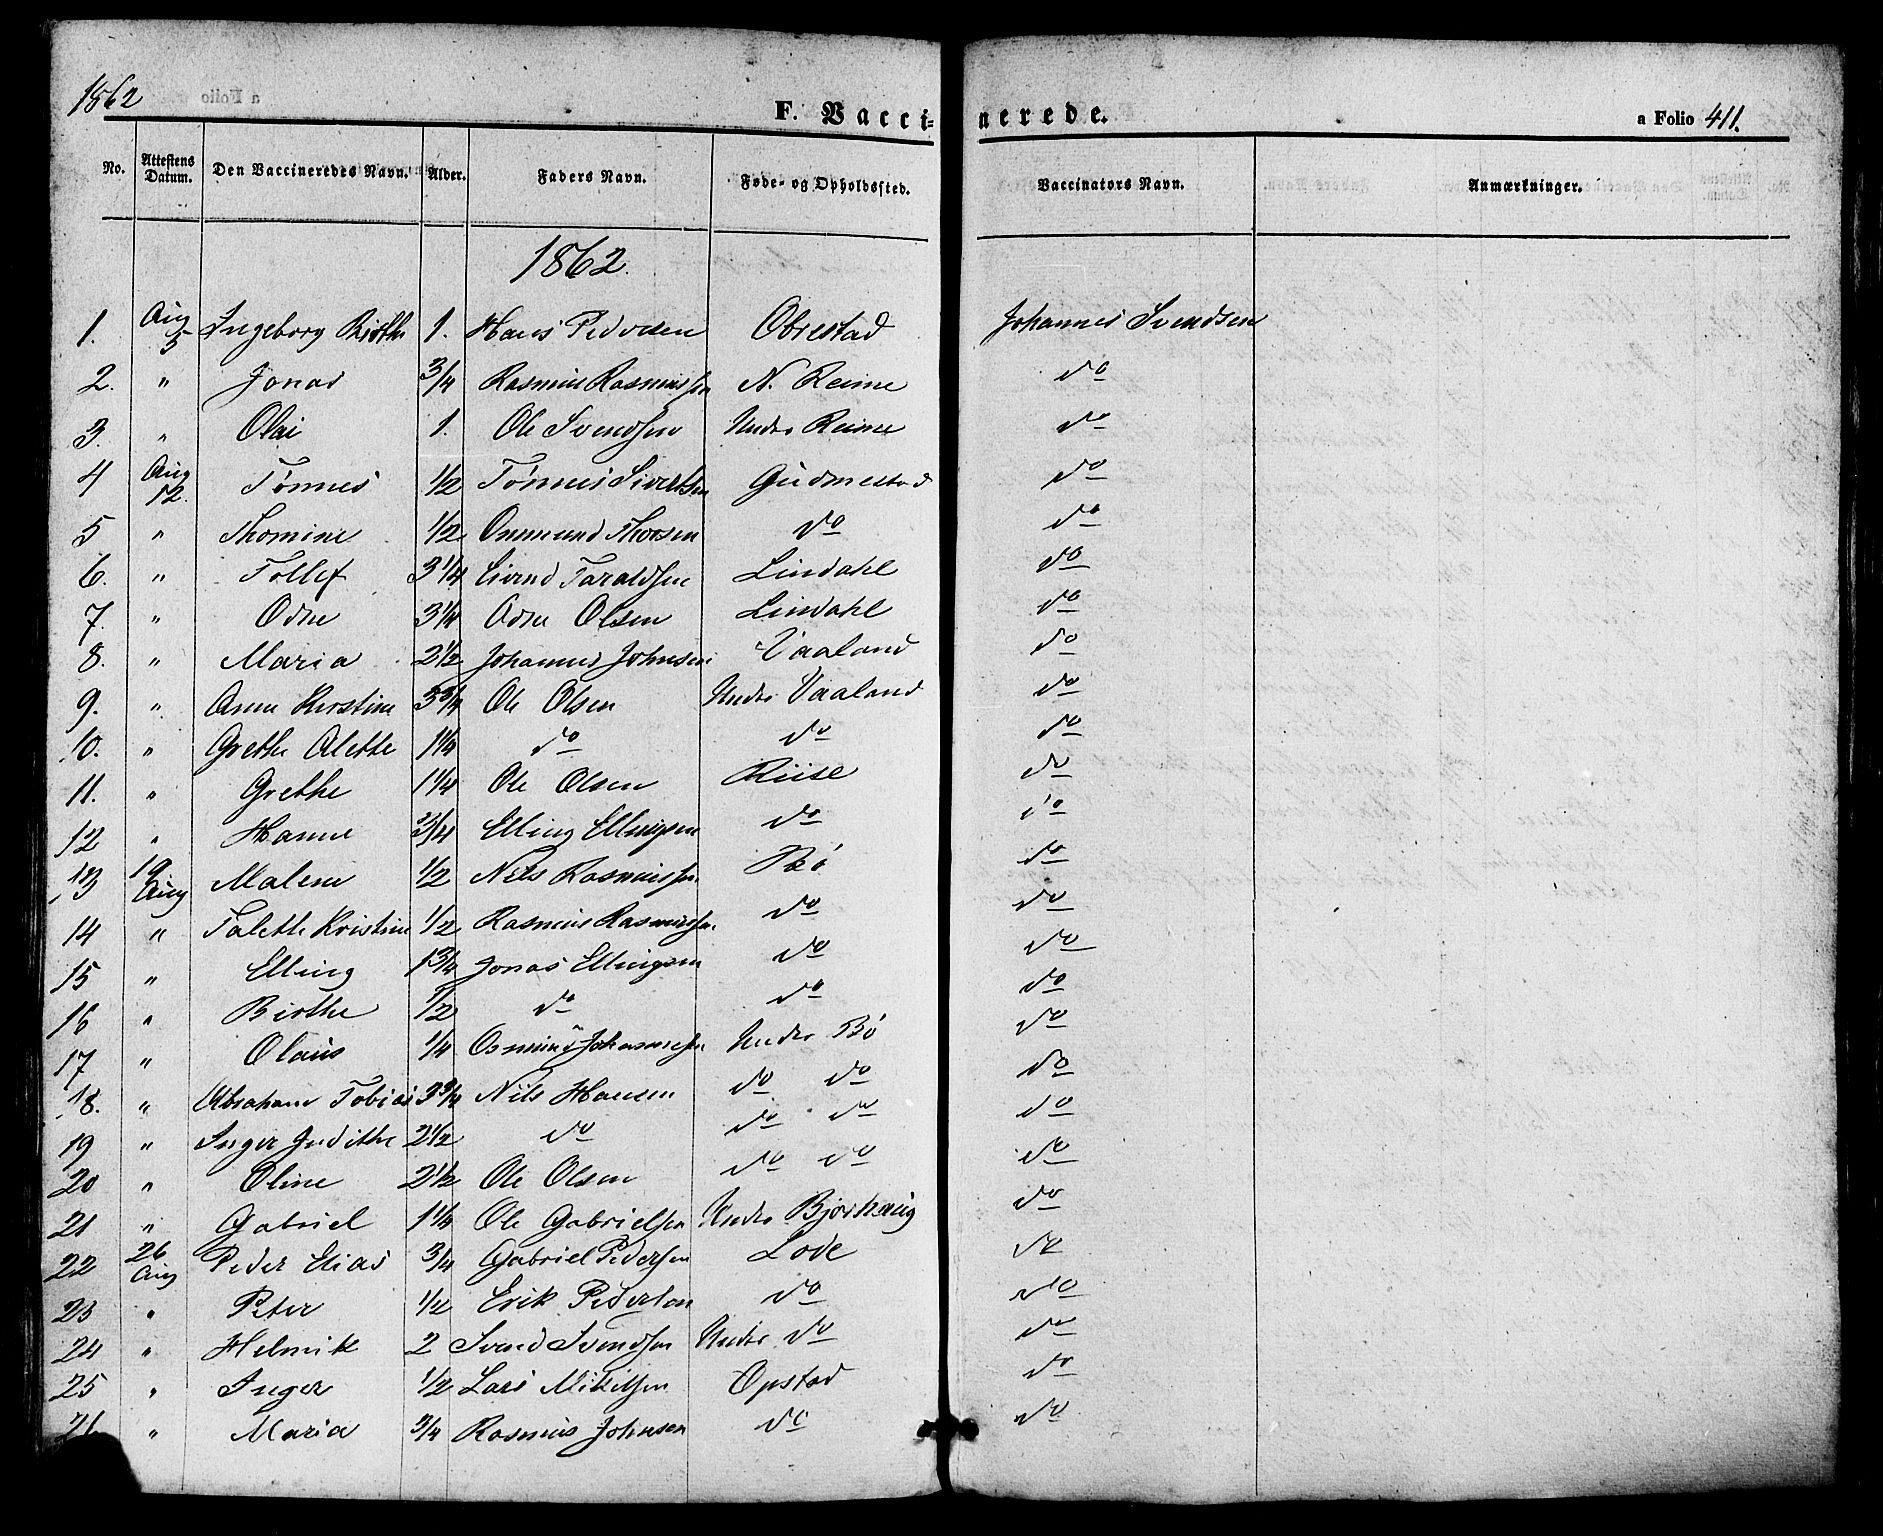 1862
F. Vaccinerede. a Folio 411.
No. Attestens Datum. Den Vaccineredes Navn. Alder. Faders Navn. Føde- og Opholdssted. Vaccinators Navn. Anmærkninger.
1862.
1. Aug 5 Ingeborg Birthe 1. Hans Pedersen Obrestad Johannes Svendsen
2. " Jonas 3/4 Rasmus Rasmussen N. Reime do
3. " Olai 1. Ole Svendsen Undre Reime do
4 Aug 12. Tønnes 1/2 Tønnes Sivertsen Gudmestad do
5 " Thomine 1/2 Onmund Thorsen do do
6. " Tollef 3 1/4 Sivend Taraldsen Lindahl do
7. " Odne 3 1/4 Odne Olsen Lindahl do
8. " Maria 2 1/2 Johannes Johnsen Vaaland do
9. " Anne Kerstine 3 3/4 Ole Olsen Undre Vaaland do
10. " Grethe Alette 1 1/4 do do do
11. " Grethe 1 1/4 Ole Olsen Riise do
12 " Hanne 3/4 Elling Ellingsen do do
13 19 Aug Malene 1/2 Nils Rasmussen Bø do
14 " Talette Kristine 1/2 Rasmus Rasmussen do do
15 " Elling 1 3/4 Jonas Ellingsen do do
16 " Birthe 1/2 do do do
17 " Olaus 1/4 Osmund Johannessen Undre Bø do
18. " Abraham Tobias 3 3/4 Nils Hansen do do do
19 " Inger Judithe 2 1/2 do do do do
20 " Oline 2 1/2 Ole Olsen do do do
21 " Gabriel 1 1/4 Ole Gabrielsen Undre Bjorhaug do
22 26 Aug Peder Elias 3/4 Gabriel Pedersen Lode do
23 " Peter 1/2 Erik Pedersen do do
24 " Helmik 2 Svend Svendsen Undre do do
25 " Inger 1/2 Lars Mikelsen Opstad do
" Maria 3/4 Rasmus Johnsen do do